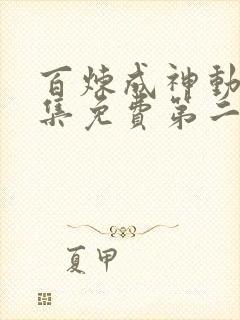 百炼成神動
集免費第二
夏甲